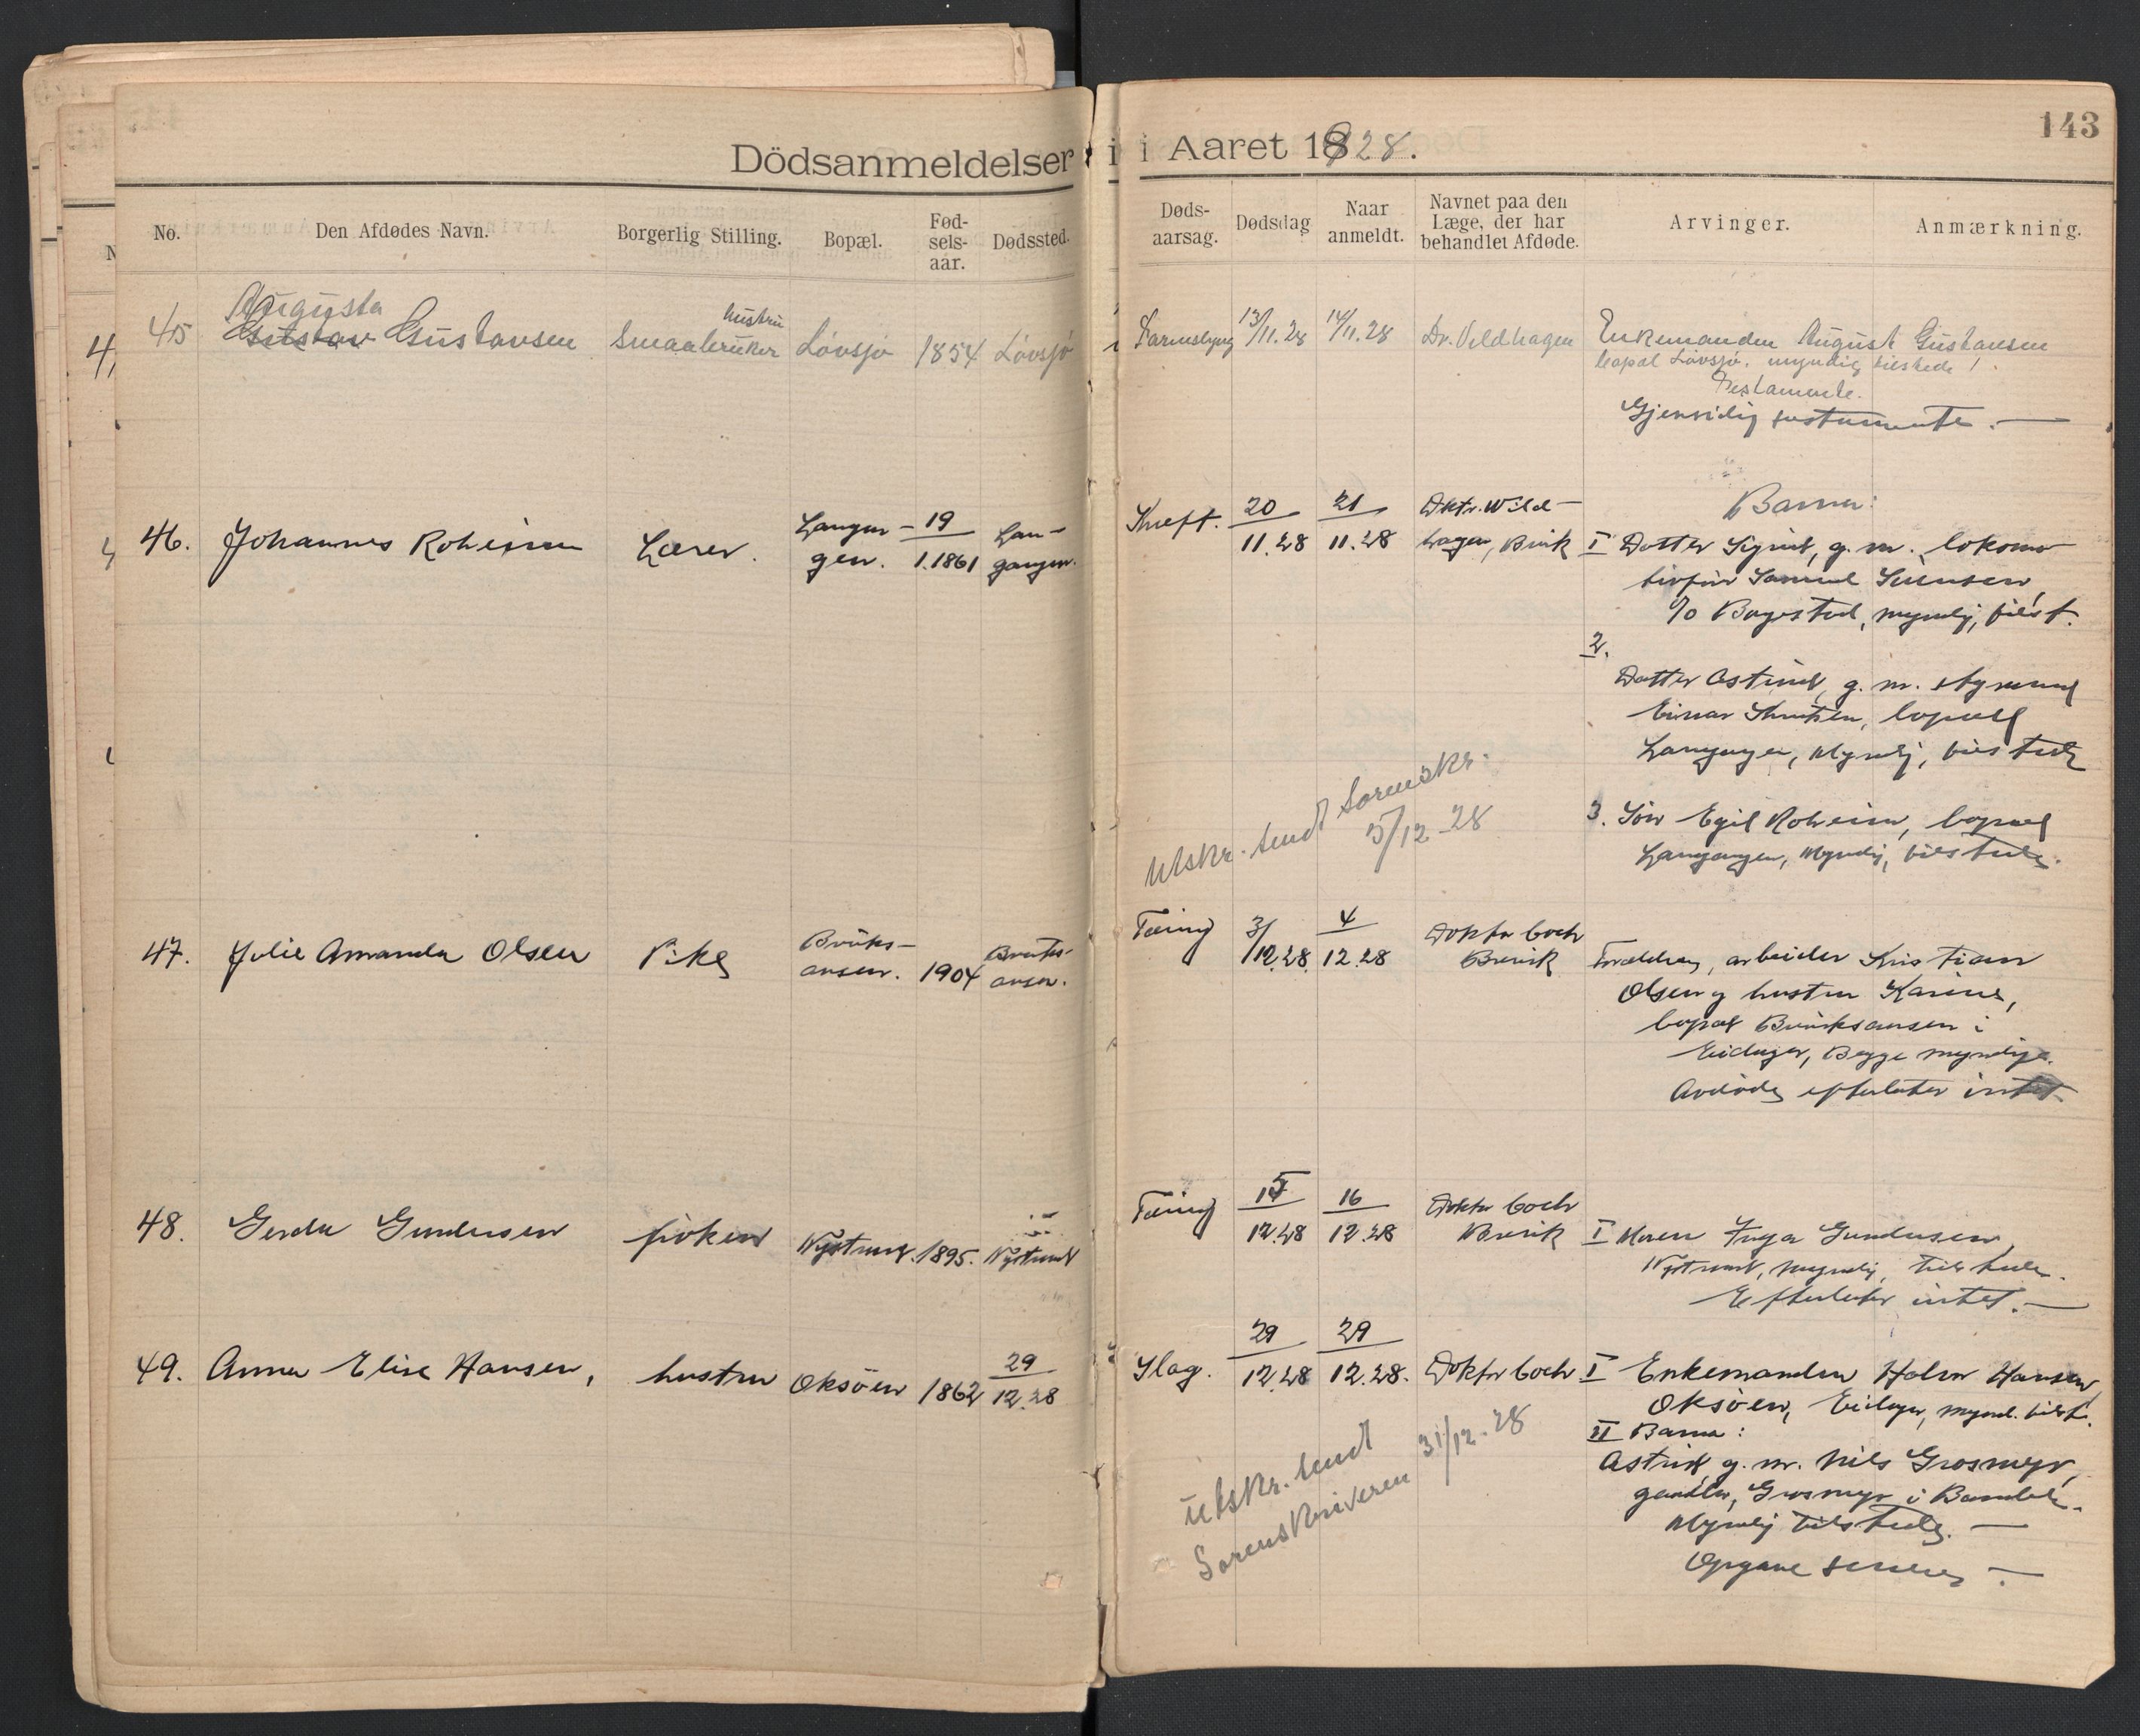 Dödsanmeldelser i
i Aaret 1928.
143
No.
Den Afdødes Navn.
Borgerlig Stilling.
Bopæl.
Fød-
sels-
aar.
Dødssted.
Døds-
aarsag.
Dødsdag
Naar
anmeldt.
Navnet paa den
Læge, der har
behandlet Afdøde.
Arvinger.
Anmærkning.
Augusta
45 Gustav Gustavsen
hustru
Smaabruker
Løvsjø
1854
Løvsjø
13/11.28
14/11.28
Dr. Vildhagen
Enkemanden August Gustavsen
bopæl Løvsjø. myndig tilstede!
Testamente.
Gjensidig testamente. —
46. Johannes Roheim
Lærer.
Langen-
gen.
19
1.1861
Lan-
gangen.
Kreft.
20
11.28
21
11.28
Dktr. Wild-
hagen, Brvik
Barna:
I Datter Signe, g. m. lokomo
tivfør Samuel
c/o Bogested, myndig, tilst.
2.
Datter Astrid, g. m. styrmand
Einar Knutsen, bopæl
Langangen, Myndig, tilstede
3. Søn Egil Roheim, bopæl
Langangen, Myndig, tilstede.
Utskr. sendt Sorenskr.
5/12-28
47. Julie Amanda Olsen
Pike
Bruks-
aasen.
1904
Bruks-
aasen.
Tæring
3/
12.28.
4
12.28
Doktor Coch
Brevik
Foreldrene, arbeider Kristian
Olsen og hustru Karine,
bopæl Bruksaasen i
Eidanger, Begge myndige.
Avdøde efterlater intet.
48. Gerda Gundersen
frøken
Nystrand.
1895.
Nystrand
Tæring
15
12.28
16
12.28
Doktor Coch
Brevik
I Moren Inga Gundersen,
Nystrand, myndig, tilstede.
Efterlater intet. —
49. Anna Elise Hansen,
hustru
Oksøen
1862
29
12.28
Slag.
29
12.28
29
12.28.
Doktor Coch
I Enkemanden Halvor Hansen,
Oksøen, Eidanger, mynd. tilst.
II Barna:
Astrid, g. m. Nils Grosmyr,
gaardbr, Grosmyr i Bamble.
Myndig tilstede. —
Opgave senere —.
Utskr. sendt
Sorenskriveren 31/12-28